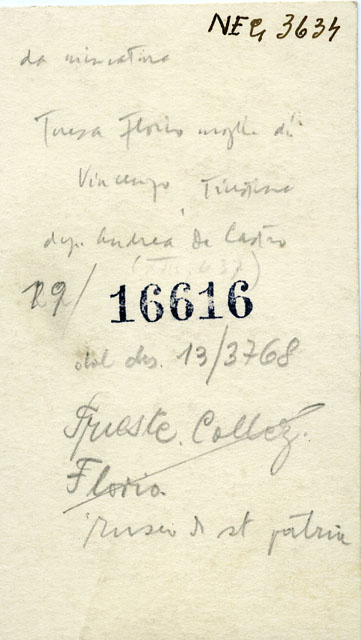 NEG. 3634
da miniatura
Teresa Florio moglie di
Vincenzo Triestina
dip. Andrea De Castro
(XIII, 637)
29/
16616
13/3768
Trieste. Collez.
Florio.
Museo di st patria